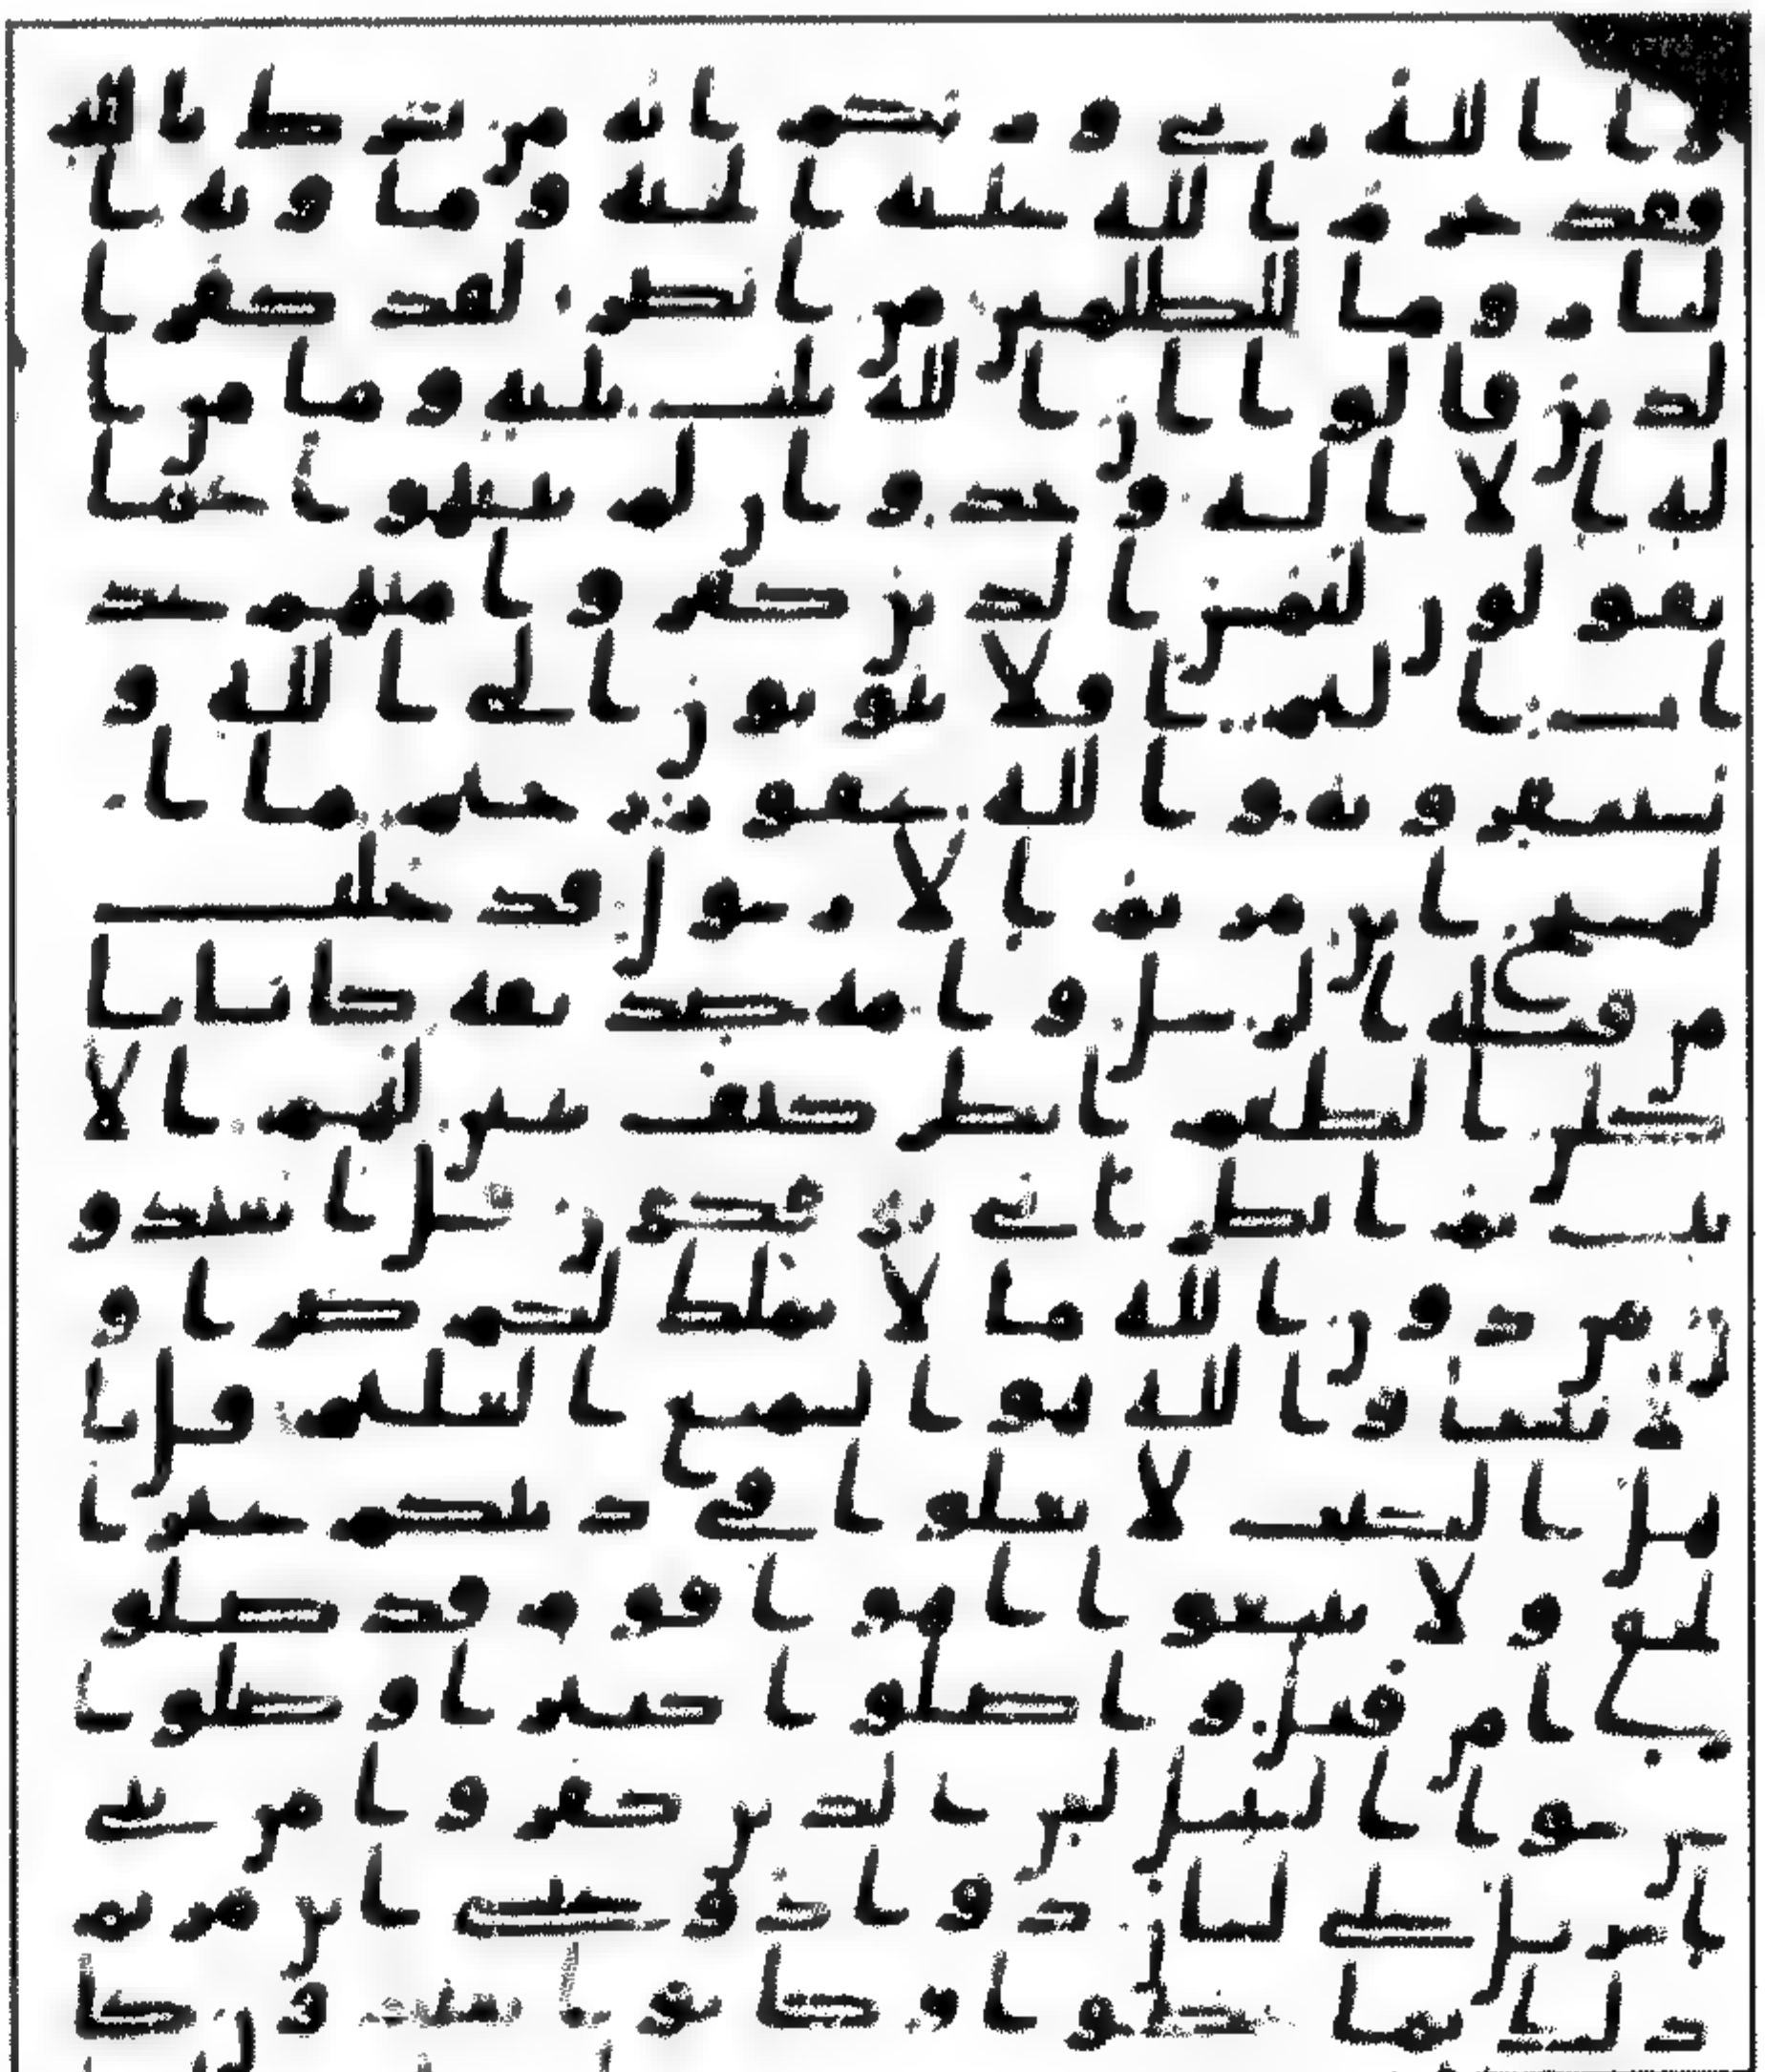 وا الله ربي وربكم انه من يشرك بالله
فقد حرم الله عليه الجنة وماويه ا
لنار وما للظلمين من انصر لقد كفر ا
لذين قالوا ان الله ثلث ثلثة وما من ا
له الا اله وحد وان لم ينتهوا عما
يقولون ليمسن الذين كفروا منهم عذ
اب اليم افلا يتوبون الى الله و
يستغفرونه والله غفور رحيم ما ا
لمسيح ابن مريم الا رسول قد خلت
من قبله الرسل وامه صديقة كانا يا
كلن الطعم انظر كيف نبين لهم الا
يت ثم انظر انى يوفكون قل اتعبدو
ن من دون الله ما لا يملك لكم ضرا و
لا نفعا والله هو السميع العليم قل يا
هل الكتب لا تغلوا في دينكم غير ا
لحق ولا تتبعوا اهوا قوم قد ضلو
ا من قبل واضلوا كثيرا وضلوا
عن سوا السبيل لعن الذين كفروا من بنى
اسريل على لسان دواد وعيسى ابن مريم
ذلك بما عصوا وكانوا يعتدون كا